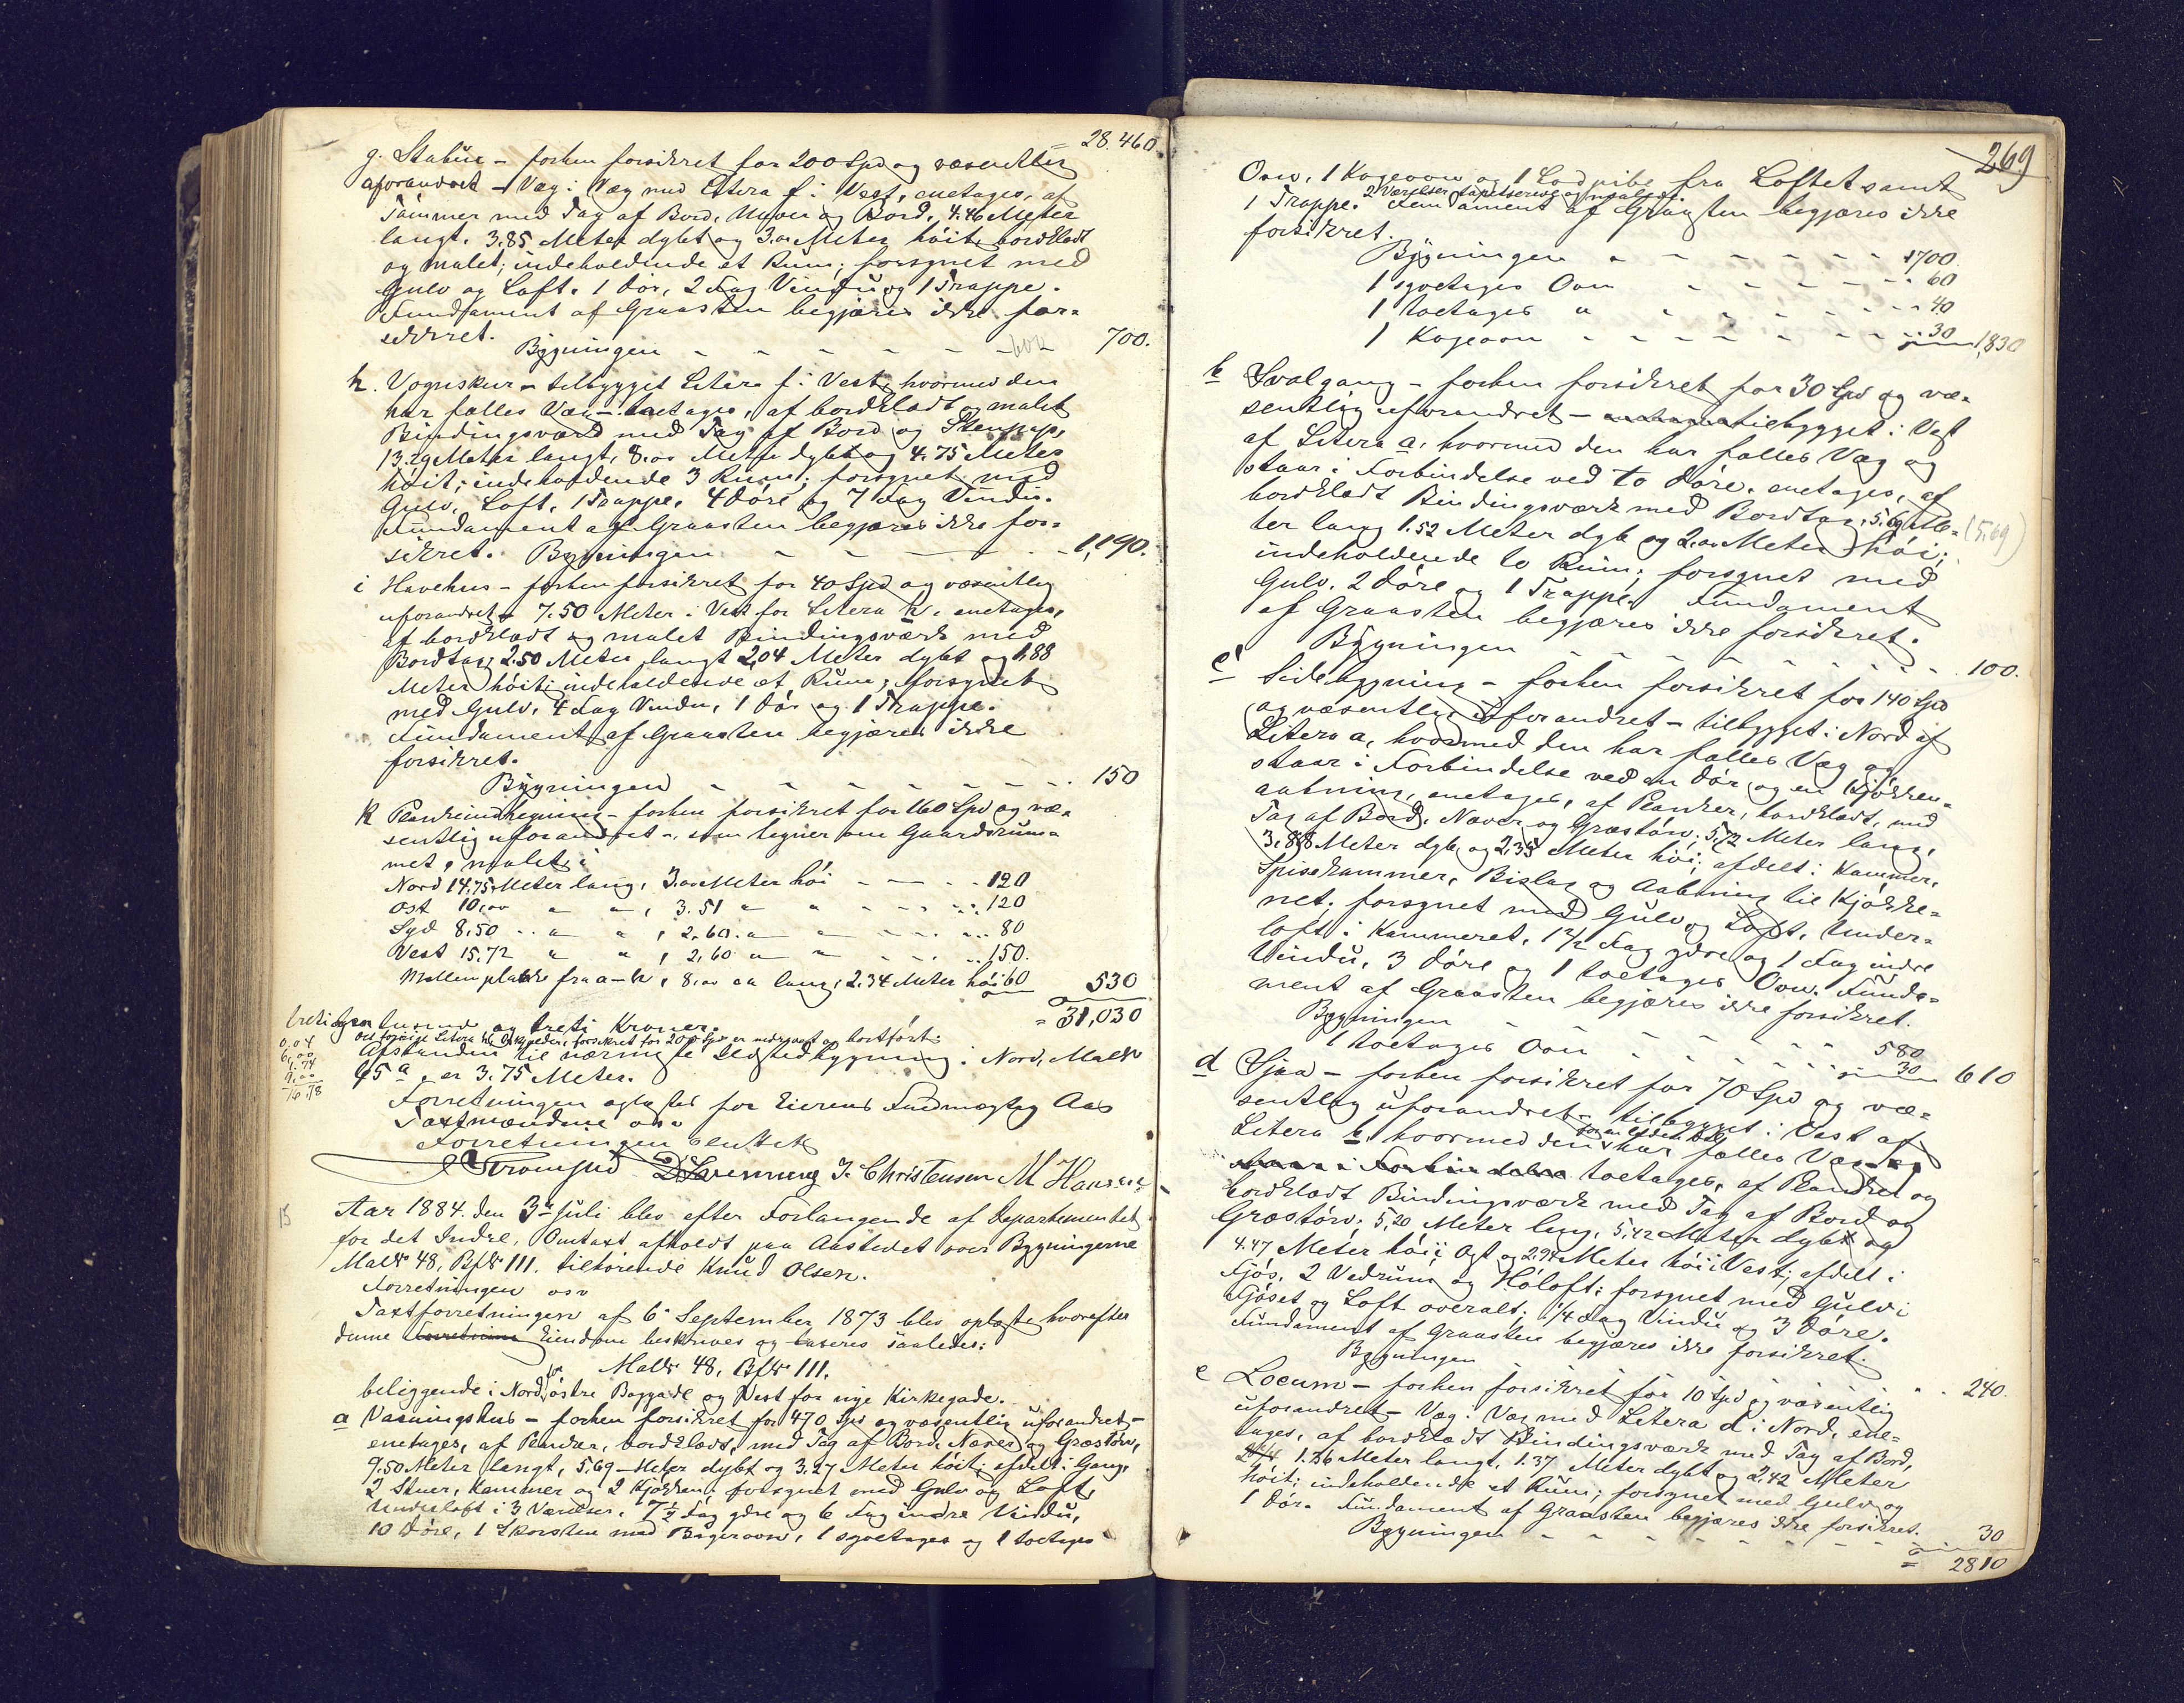 28.460
g. Stabur – forhen forsikret for 200 Spd og væsentlig
uforandret – Væg i Væg med Litera f i Vest, enetages, af
Tømmer med Tag af Bord, Næver og Bord, 4.46 Meter
langt, 3.85 Meter dybt og 3.00 Meter høit, bordklædt
og malet; indeholdende et Rum; forsynet med
Gulv og Loft, 1 Dør, 2 Fag Vindu og 1 Trappe.
Fundament af Graasten begjæres ikke for=
sikkret.
Bygningen - - - - - - 700.
h. Vognskur – tilbygget Litera f i Vest, hvormed den
har fælles Væg – toetages, af bordklædt og malet
Bindingsværk med Tag af Bord og Stenpap,
13.29 Meter langt, 8.00 Meter dybt og 4.75 Meter
høit; indeholdende 3 Rum; forsynet med
Gulv, Loft, 1 Trappe, 4 Døre og 7 Fag Vindu.
Fundament af Graasten begjæres ikke for=
sikret. Bygningen - - - - 1,190.
i Havehus – forhen forsikret for 40 Spd og væsentlig
uforandret – 7.50 Meter i Vest for Litera h, enetages,
af bordklædt og malet Bindingsværk med
Bordtag, 2.50 Meter langt 2,04 Meter dybt og 1,88
Meter høit; indeholdende et Rum; forsynet
med Gulv, 4 Fag Vindu, 1 Dør og 1 Trappe.
Fundament af Graasten begjæres ikke
forsikret.
Bygningen - - - - - - - 150
k Plankeindhegning – forhen forsikret for 160 Spd og væ=
sentlig uforandret –, som hegner om Gaardsrum=
met, malet, i
Nord 14,75 Meter lang, 3.00 Meter høi - - - 120
Ost 10,00 " " , 3.51 " " - - - 120
Syd 8,50 " " , 2,60 " " - - - 80
Vest 15,72 " " , 2,60 " " - - - 150.
Mellemplanke fra a–h, 8,00 " lang, 2,34 Meter høi 60 530
= 31,030
tusind og treti Kroner.
Afstanden til nærmeste Ildstedbygning i Nord, Malt
65 a, er 3.75 Meter.
0.04
6,00
1.74
9,00
16.78
Forretningen oplæstes for Eierens Fuldmægtig Aas
Taxtmændene osv
Forretningen sluttet
J. Christensen M Hansen
Aar 1884. den 3die Juli blev efter Forlangende af Departementet
for det Indre, Omtaxt afholdt paa Aastedet over Bygningerne
Matr 48, Bfr 111. tilhørende Knud Olsen.
Forretningen osv
Taxtforretningen af 6 September 1873 blev oplæst, hvorefter
denne Eiendom beskrives og taxeres saaledes:
Matr 48, Bfr 111.
beliggende i Nord for østre Baggade og Vest for nye Kirkegade.
a Vaaningshus – forhen forsikret for 470 Spd og væsentlig uforandret –
enetages, af Planker, bordklædt, med Tag af Bord, Næver og Græstørv,
9,50 Meter langt, 5,69 Meter dybt og 3,27 Meter høit; afdelt i Gang,
2 Stuer, Kammer og 2 Kjøkken; forsynet med Gulv og Loft,
Underloft i 3 Værelser, 7 1/2 Fag ydre og 6 Fag indre Vindu,
10 Døre, 1 Skorsten med Bagerovn, 1 syvetages og 1 toetages
269
Ovn, 1 Kogeovn og 1 Lodpibe fra Loftet samt
2 Værelser tapetserede og malede.
1 Trappe. Fundament af Graasten begjæres ikke
forsikret.
Bygningen - - - - - - 1700.
1 syvetages Ovn - - - - - 60
1 toetages " - - - - - 40
1 Kogeovn - - - - - - 30 1,830
b Svalgang – forhen forsikret for 30 Spd og væ=
sentlig uforandret – tilbygget i Vest
af Litera a, hvormed den har fælles Væg og
staar i Forbindelse ved to Døre, enetages, af
bordklædt Bindingsværk med Bordtag, 5.69 Me= (5,69)
ter lang 1.52 Meter dyb og 2.00 Meter høi;
indeholdende to Rum; forsynet med
Gulv, 2 Døre og 1 Trappe. Fundament
af Graasten begjæres ikke forsikret.
Bygningen - - - - - - - 100.
c Sidebygning – forhen forsikret for 140 Spd
og væsentlig uforandret – tilbygget i Nord af
Litera a, hvormed den har fælles Væg og
staar i Forbindelse ved en Dør og en Kjøkken=
aabning, enetages, af Planker, bordklædt, med
Tag af Bord, Næver og Græstørv; 5,72 Meter lang,
3,88 Meter dyb og 2,35 Meter høi; afdelt i Kammer,
Spisekammer, Bislag og Aabning til Kjøkke=
net; forsynet med Gulv og Loft, Under=
loft i Kammeret, 1 1/2 Fag ydre og 1 Fag indre
Vindu, 3 Døre og 1 toetages Ovn. Funda=
ment af Graasten begjæres ikke forsikret.
Bygningen - - - - - - 580
1 toetages Ovn - - - - - - 30 610
d Sjaa – forhen forsikret for 70 Spd og væ=
sentlig uforandret – tilbygget i Vest af
Litera b, hvormed den har fælles Væg
toetages, af Planker og
bordklædt Bindingsværk med Tag af Bord og
Græstørv; 5,20 Meter lang, 5,42 Meter dybt og
4.47 Meter høi i Ost og 2.94 Meter høi i Vest; afdelt i
Fjøs, 2 Vedrum og Høloft; forsynet med Gulv i
Fjøset og Loft overalt; 1/4 Fag Vindu og 3 Døre.
Fundament af Graasten begjæres ikke forsikret.
Bygningen - - - - 240.
e Locum – forhen forsikret for 10 Spd og væsentlig
uforandret – Væg i Væg med Litera d i Nord, ene=
tages, af bordklædt Bindingsværk med Tag af Bord,
1.36 Meter langt, 1.37 Meter dybt og 2,42 Meter
høit; indeholdende et Rum; forsynet med Gulv og
1 Dør. Fundament af Graasten begjæres ikke forsikret.
Bygningen - - - - - - - 30
= 2810